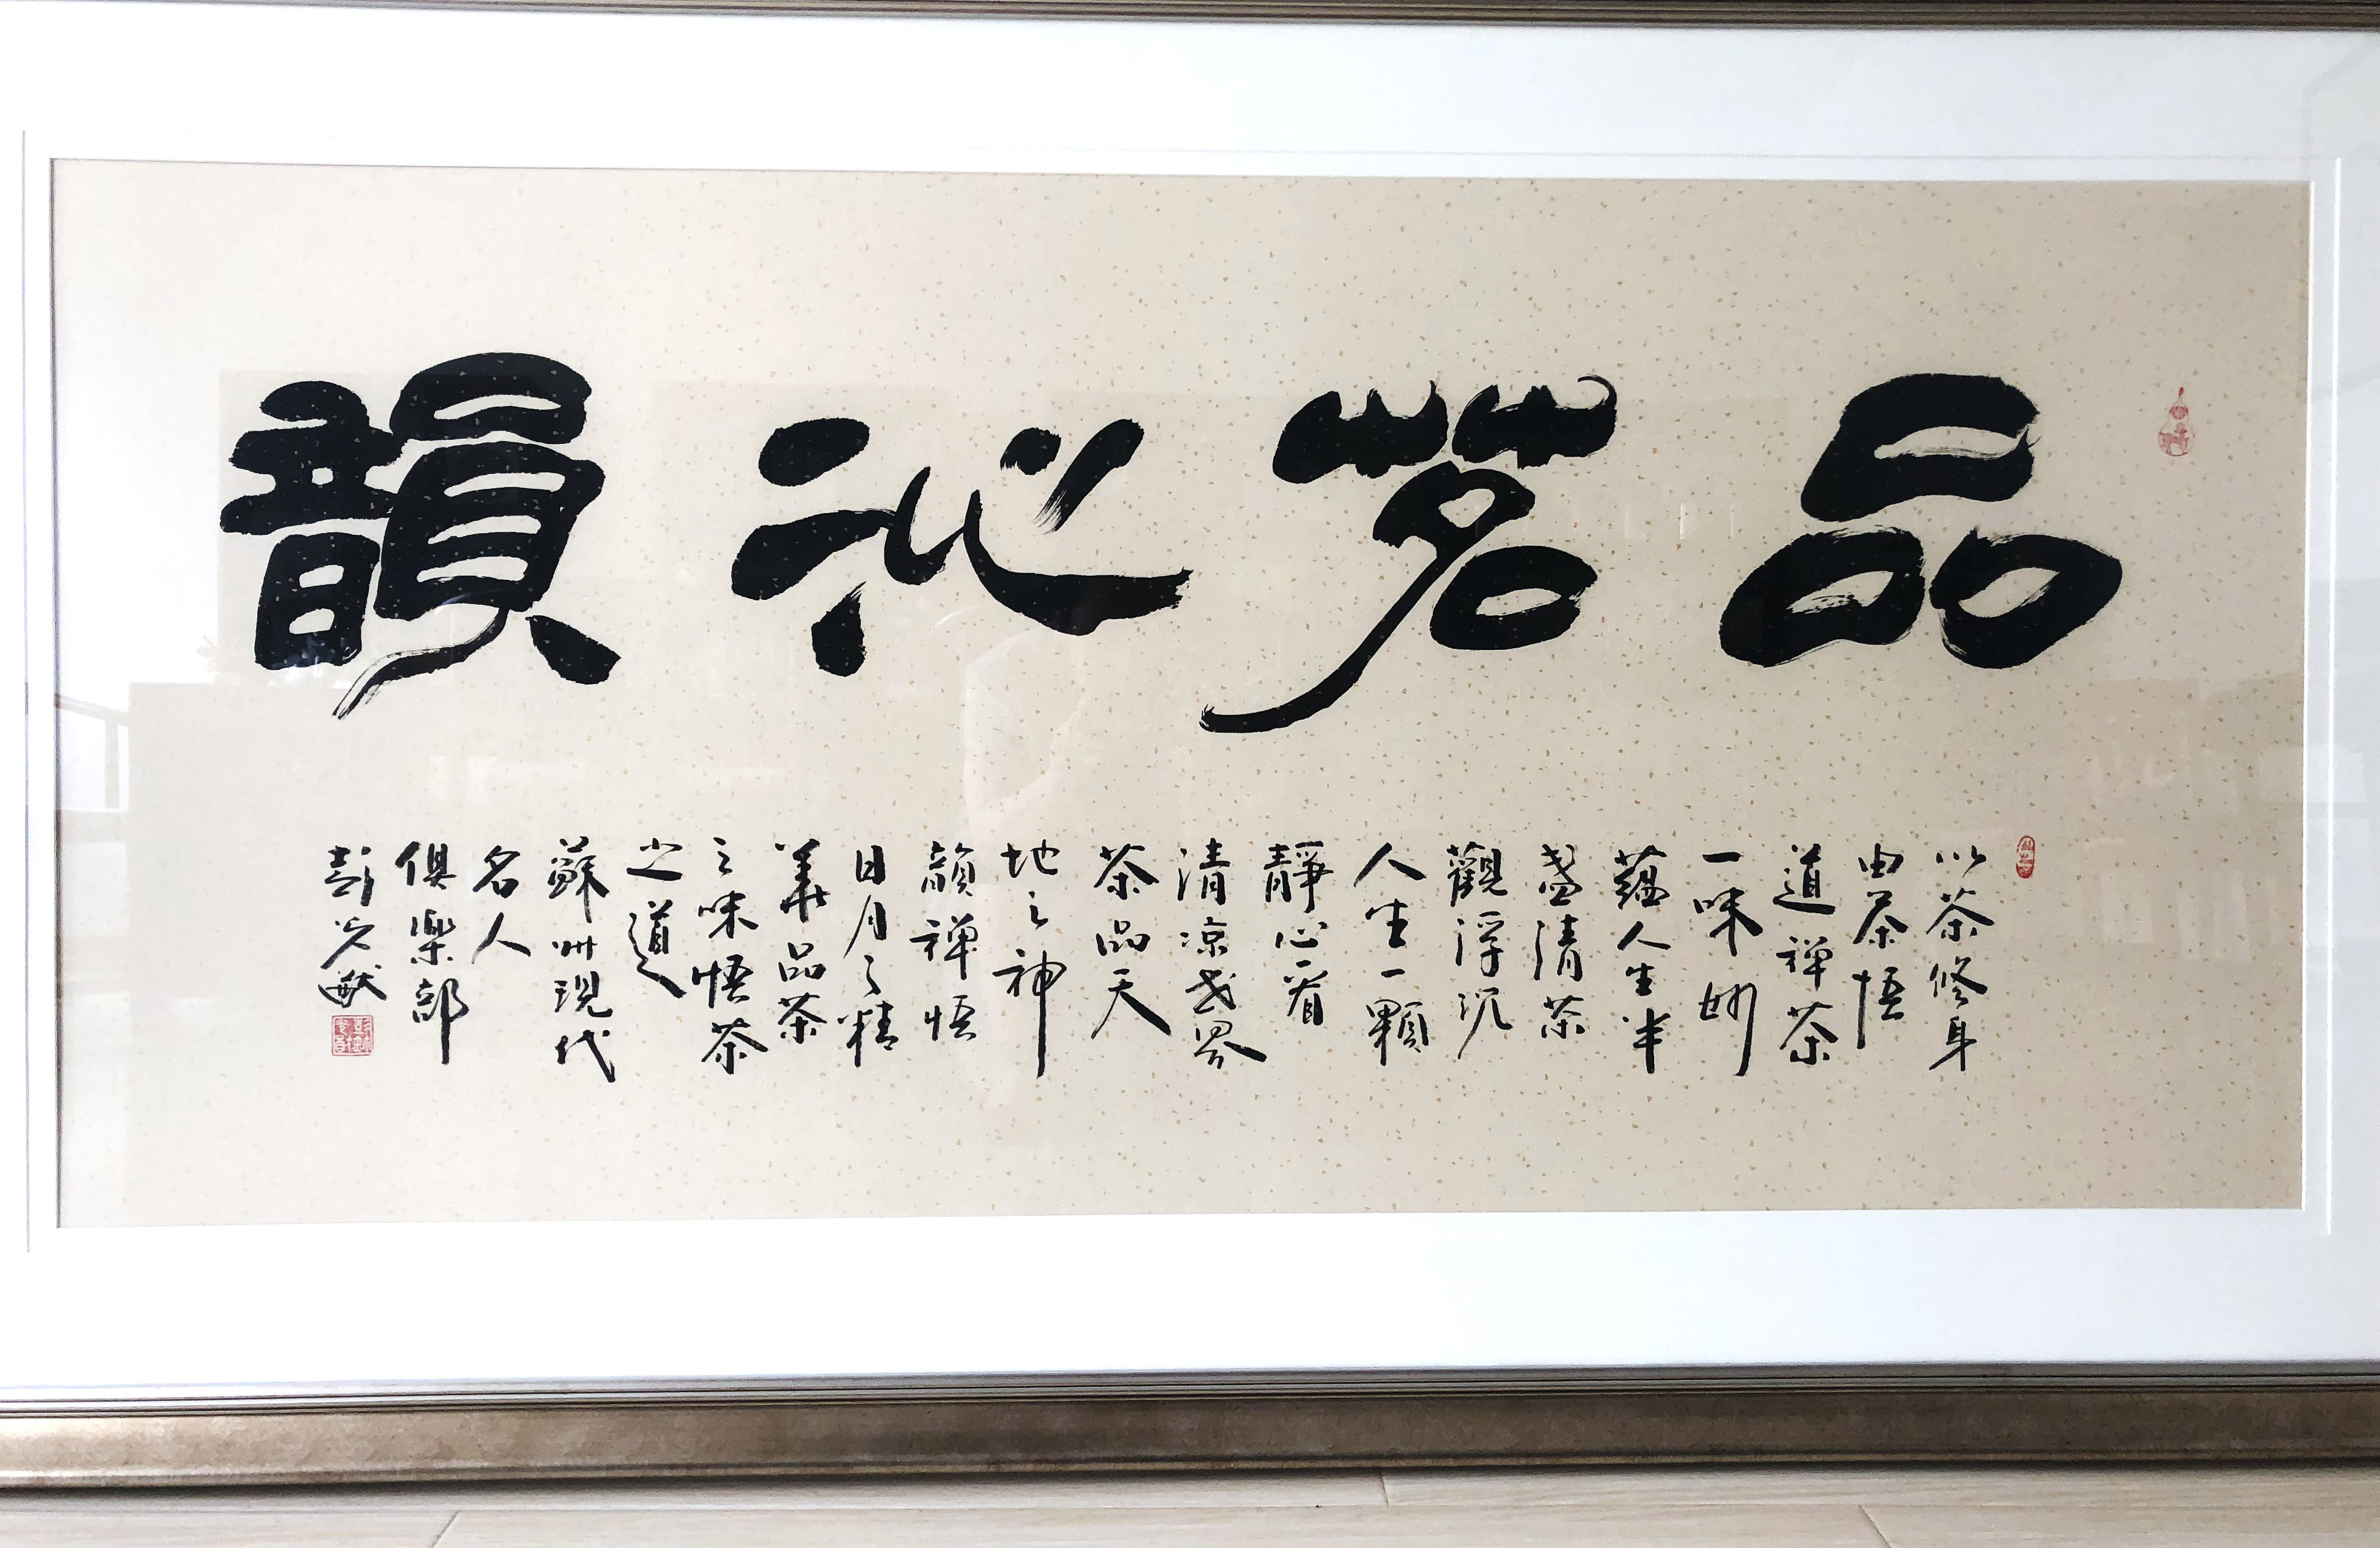 品茗沁韻
以茶修身
由茶悟
道禅茶
一味妙
蕴人生半
盏清茶
觀浮沉
人生一顆
靜心看
清凉世界
茶品天
地之神
韻禅悟
日月之精
華品茶
之味悟茶
之道
蘇州現代
名人
俱樂部
彭